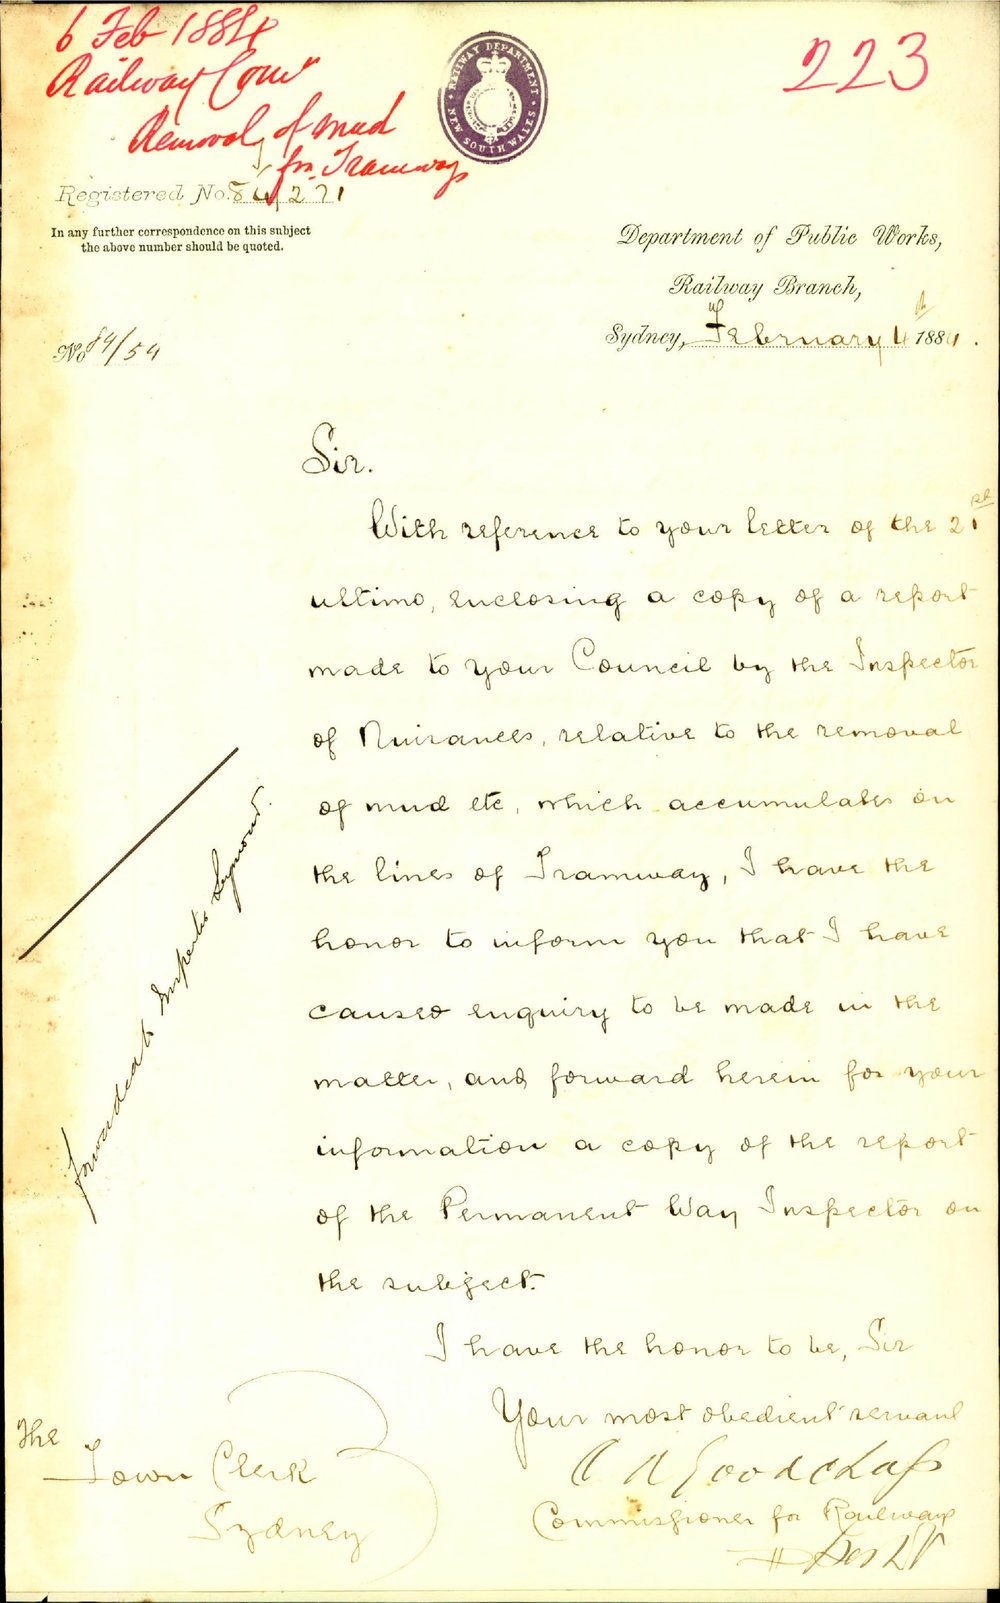 6 Feb 1884
Railway Comr
Removal of mud
for Tramway
RAILWAY DEPARTMENT
NEW SOUTH WALES
223
Registered No. 84/271
In any further correspondence on this subject
the above number should be quoted.
Department of Public Works,
Railway Branch,
Sydney, February 4th 1884.
No 84/54
Sir.
With reference to your letter of the 21st
ultimo, enclosing a copy of a report
made to your Council by the Inspector
of Nuisances, relative to the removal
of mud etc, which accumulates on
the lines of Tramway, I have the
honor to inform you that I have
caused enquiry to be made in the
matter, and forward herein for your
information a copy of the report
of the Permanent Way Inspector on
the subject.
forwarded to Inspector Seymour.
I have the honor to be, Sir
Your most obedient servant
Commissioner for Railways
The
Town Clerk
Sydney